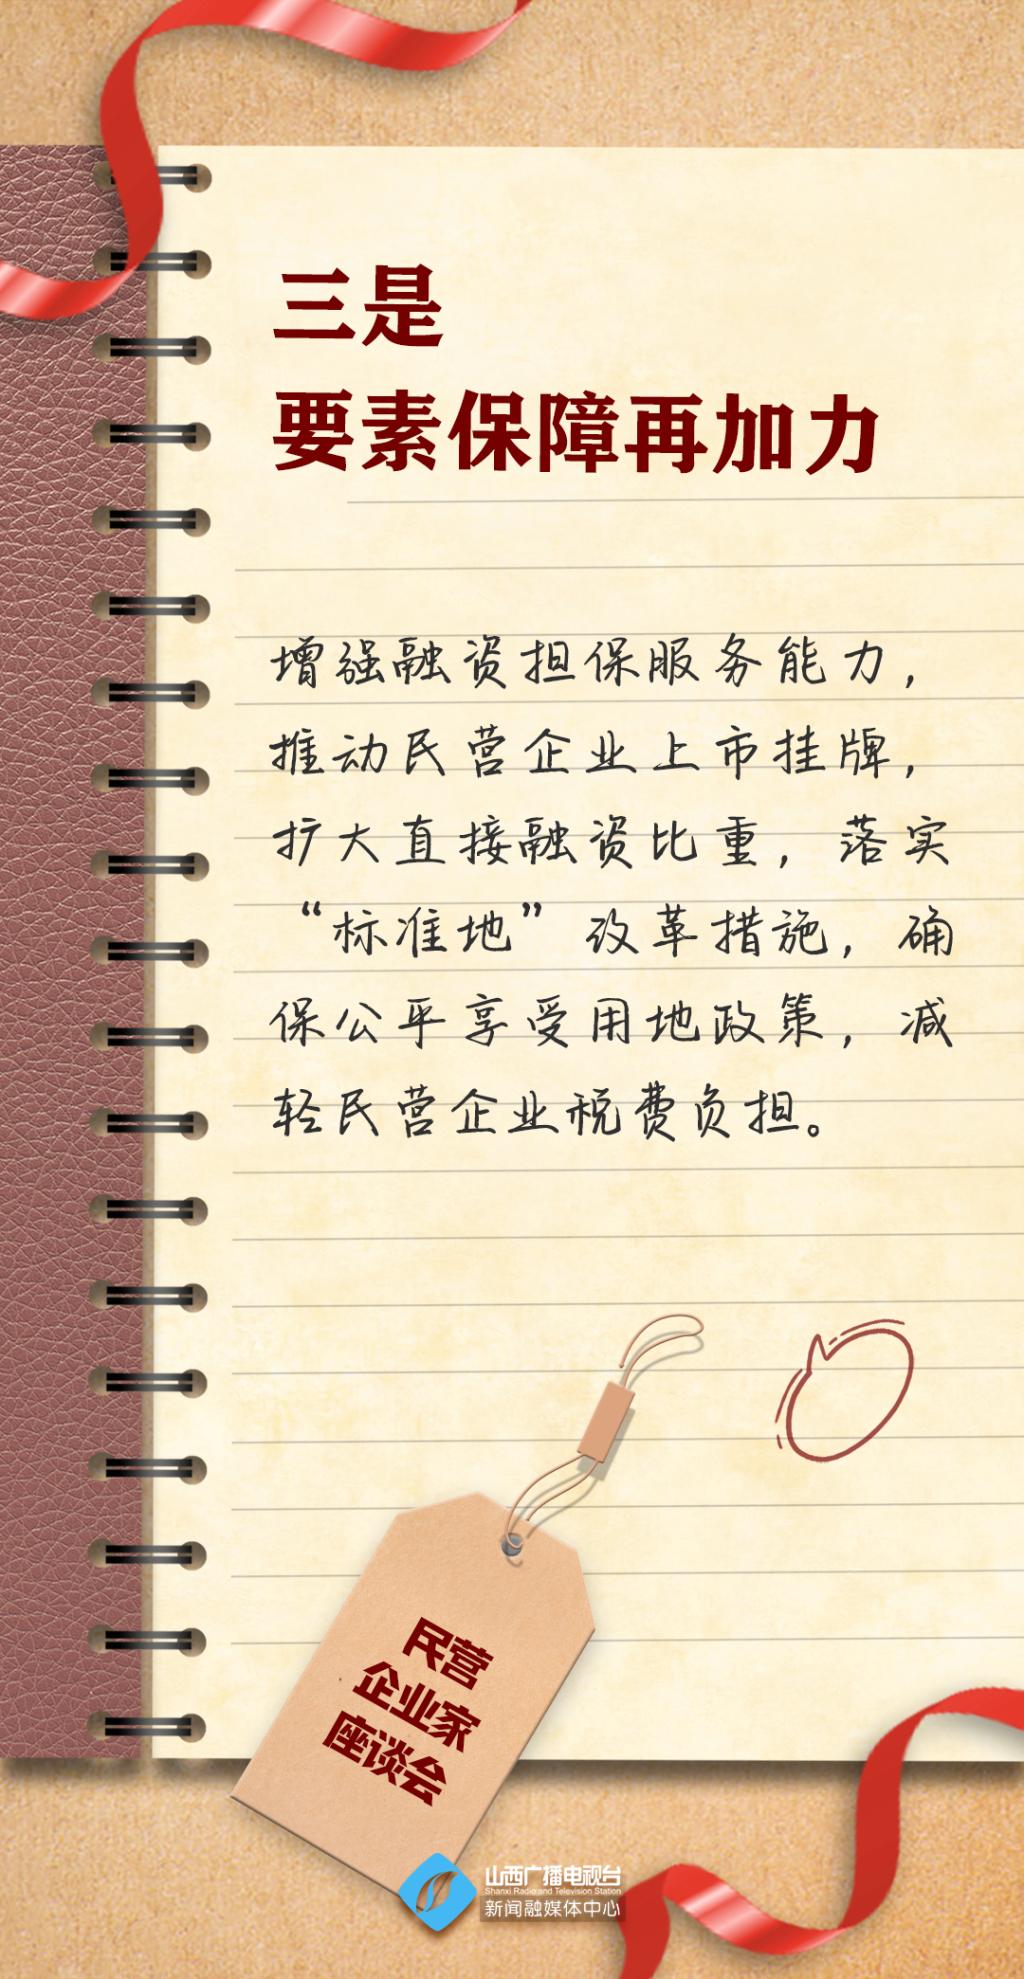 三是
要素保障再加力
增强融资担保服务能力，
推动民营企业上市挂牌，
扩大直接融资比重，落实
“标准地”改革措施，确
保公平享受用地政策，减
轻民营企业税费负担。
民营
企业家
座谈会
山西广播电视台
Shanxi Radio and Television Station
新闻融媒体中心